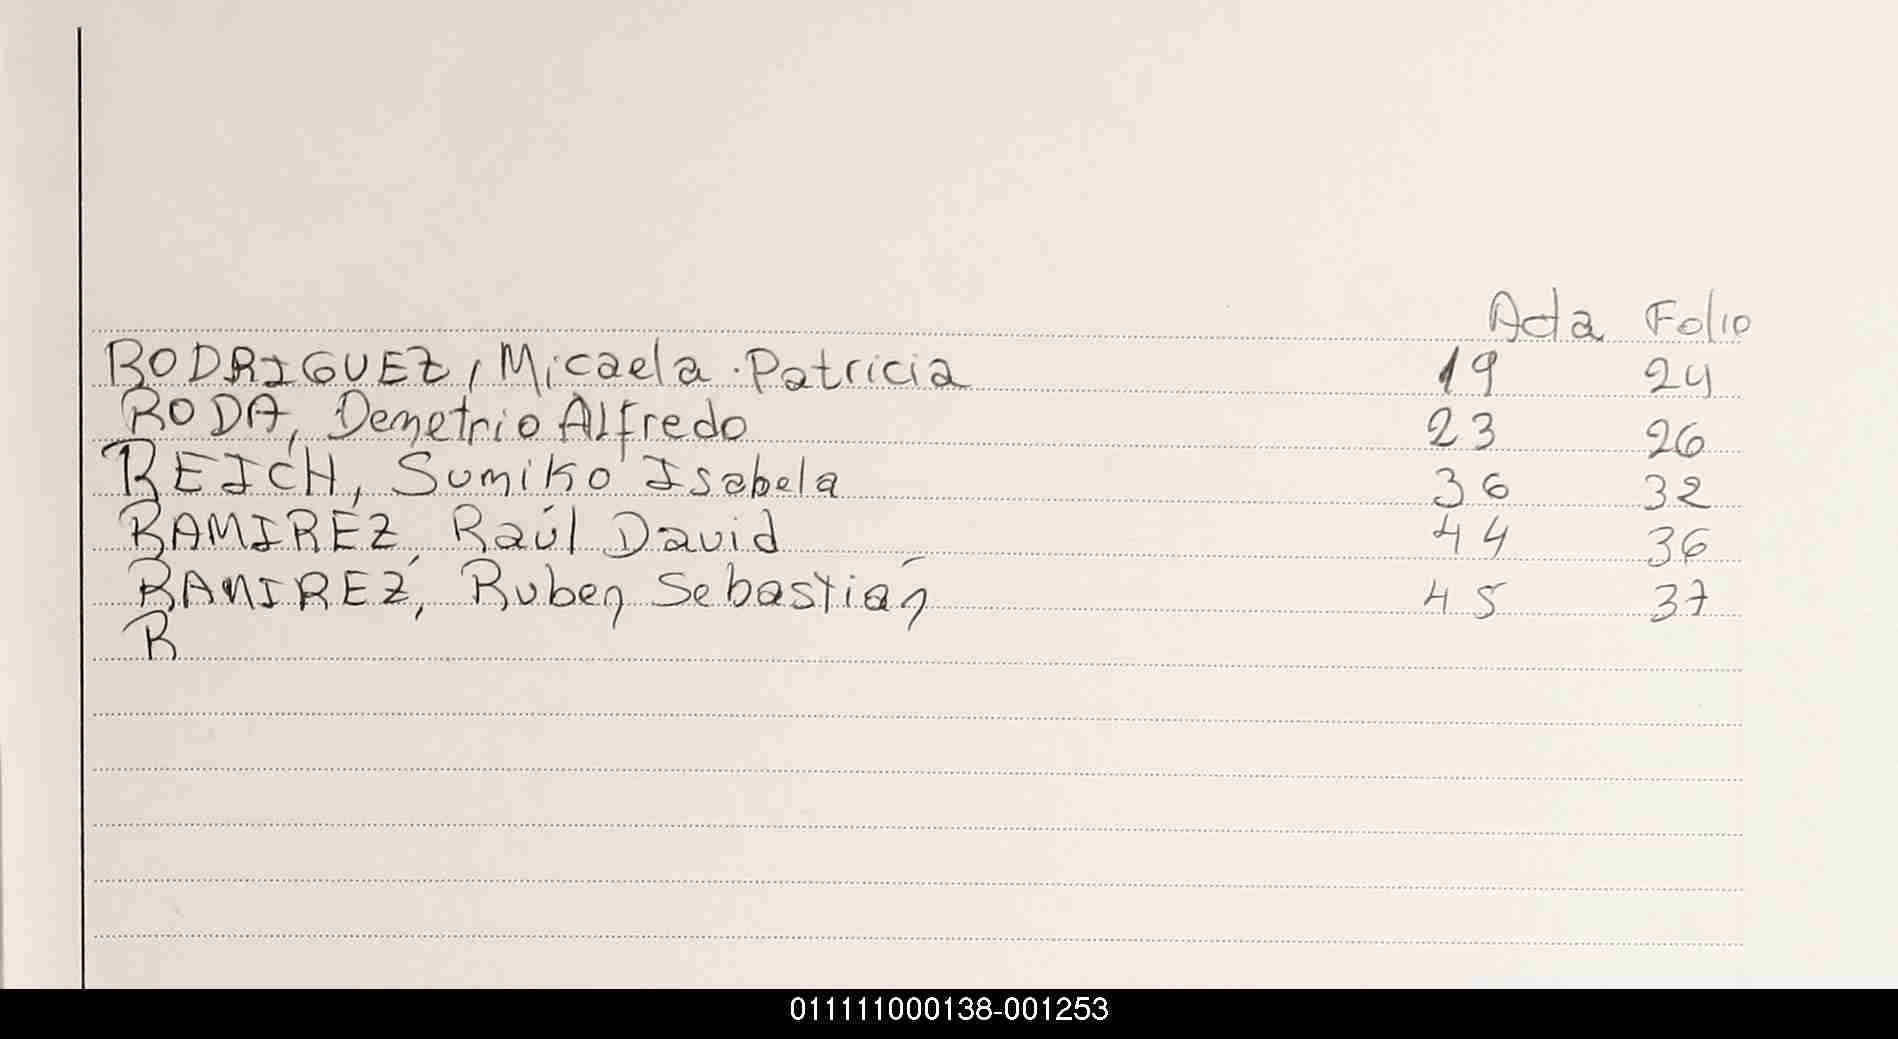 Acta Folio
RODRIGUEZ, Micaela Patricia 19 24
RODA, Demetrio Alfredo 23 26
REICH, Sumiko Isabela 36 32
RAMIREZ, Raúl David 44 36
RAMIREZ, Ruben Sebastián 45 37
R
011111000138-001253